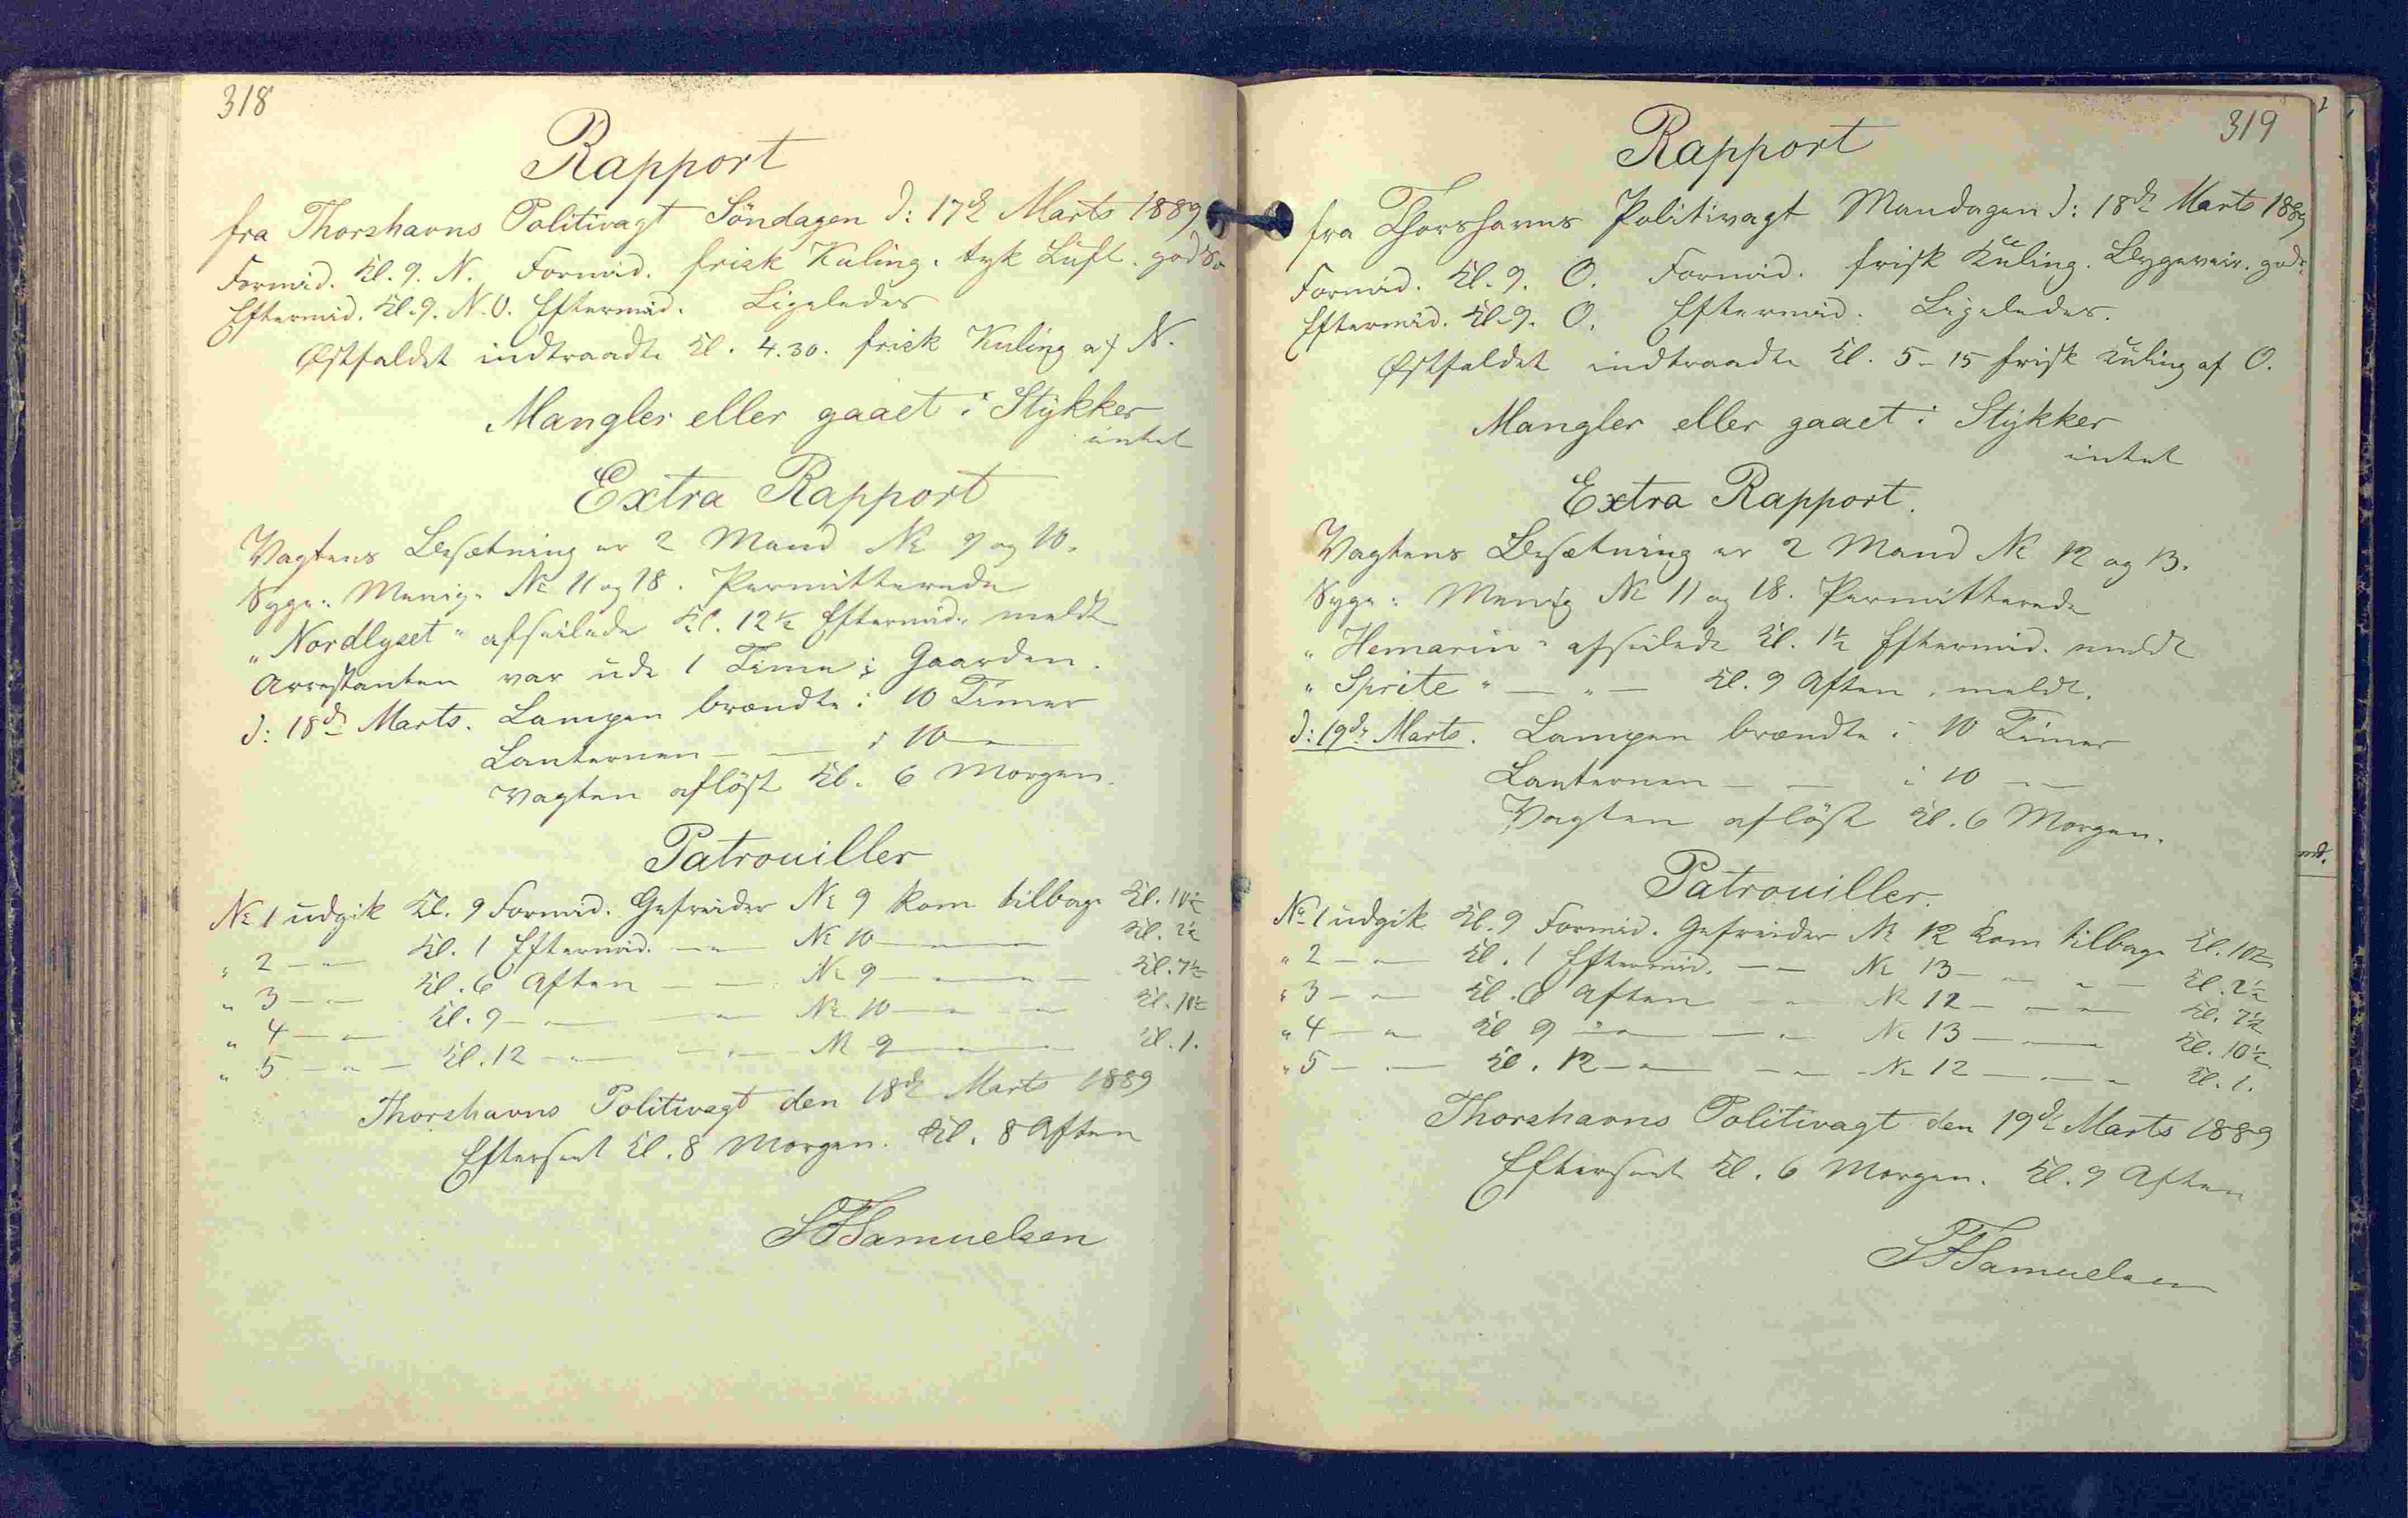 318
Rapport
fra Thorshavns Politivagt Söndagen d: 17de Marts 1889
Formid. Kl. 9. N. Formid. frisk Kuling. tyk Luft. god
Eftermid. Kl. 9. N.O. Eftermid. Ligeledes
Østfaldet indtraadte Kl. 4.30. frisk Kuling af N.
Mangler eller gaaet i Stykker
intet
Extra Rapport
Vagtens Besætning er 2 Mand No 9 og 10.
Syge: Menig No 11 og 18. Permitterede
"Nordlyset" afseilede Kl. 12½ Eftermid. meldt
Arrestanten var ude 1 Time i Gaarden.
d: 18de Marts. Lampen brændte i 10 Timer
Lanternen — — i 10 —
Vagten aflöst Kl. 6 Morgen.
Patrouiller
No 1 udgik Kl. 9 Formid. Gefreider No 9 kom tilbage Kl. 10½
" 2 — " — Kl. 1 Eftermid. — " — No 10 — " — Kl. 2½
" 3 — " — Kl. 6 Aften — — No 9 — " — " — Kl. 7½
" 4 — " — Kl. 9 — " — — " — No 10 — " — " — Kl. 10½
" 5 — " — Kl. 12 — " — — " — No 9 — " — Kl. 1.
Thorshavns Politivagt den 18de Marts 1889
Efterseet Kl. 8 Morgen. Kl. 8 Aften
Samuelsen
319
Rapport
fra Thorshavns Politivagt Mandagen d: 18de Marts 1889
Formid. Kl. 9. O. Formid. frisk Kuling. Bygeveir. god
Eftermid. Kl. 9. O. Eftermid. Ligeledes.
Østfaldet indtraadte Kl. 5-15 frisk Kuling af O.
Mangler eller gaaet i Stykker
intet
Extra Rapport.
Vagtens Besætning er 2 Mand No 12 og 13.
Syge: Menig No 11 og 18. Permitterede
"Hemarin" afseilede Kl. 1½ Eftermid. meldt
"Sprite" — " — Kl. 9 Aften, meldt.
d: 19de Marts. Lampen brændte i 10 Timer
Lanternen — — i 10 — —
Vagten aflöst Kl. 6 Morgen.
Patrouiller.
No 1 udgik Kl. 9 Formid. Gefreider No 12 kom tilbage Kl. 10½
" 2 — " — Kl. 1 Eftermid. — — No 13 — " — " — Kl. 2½
" 3 — " — Kl. 6 Aften — " — No 12 — " — " — Kl. 7½
" 4 — " — Kl 9 — " — — " — No 13 — " — Kl. 10½
" 5 — " — Kl. 12 — " — — " — No 12 — " — " Kl. 1.
Thorshavns Politivagt den 19de Marts 1889
Efterseet Kl. 6 Morgen. Kl. 9 Aften
Samuelsen